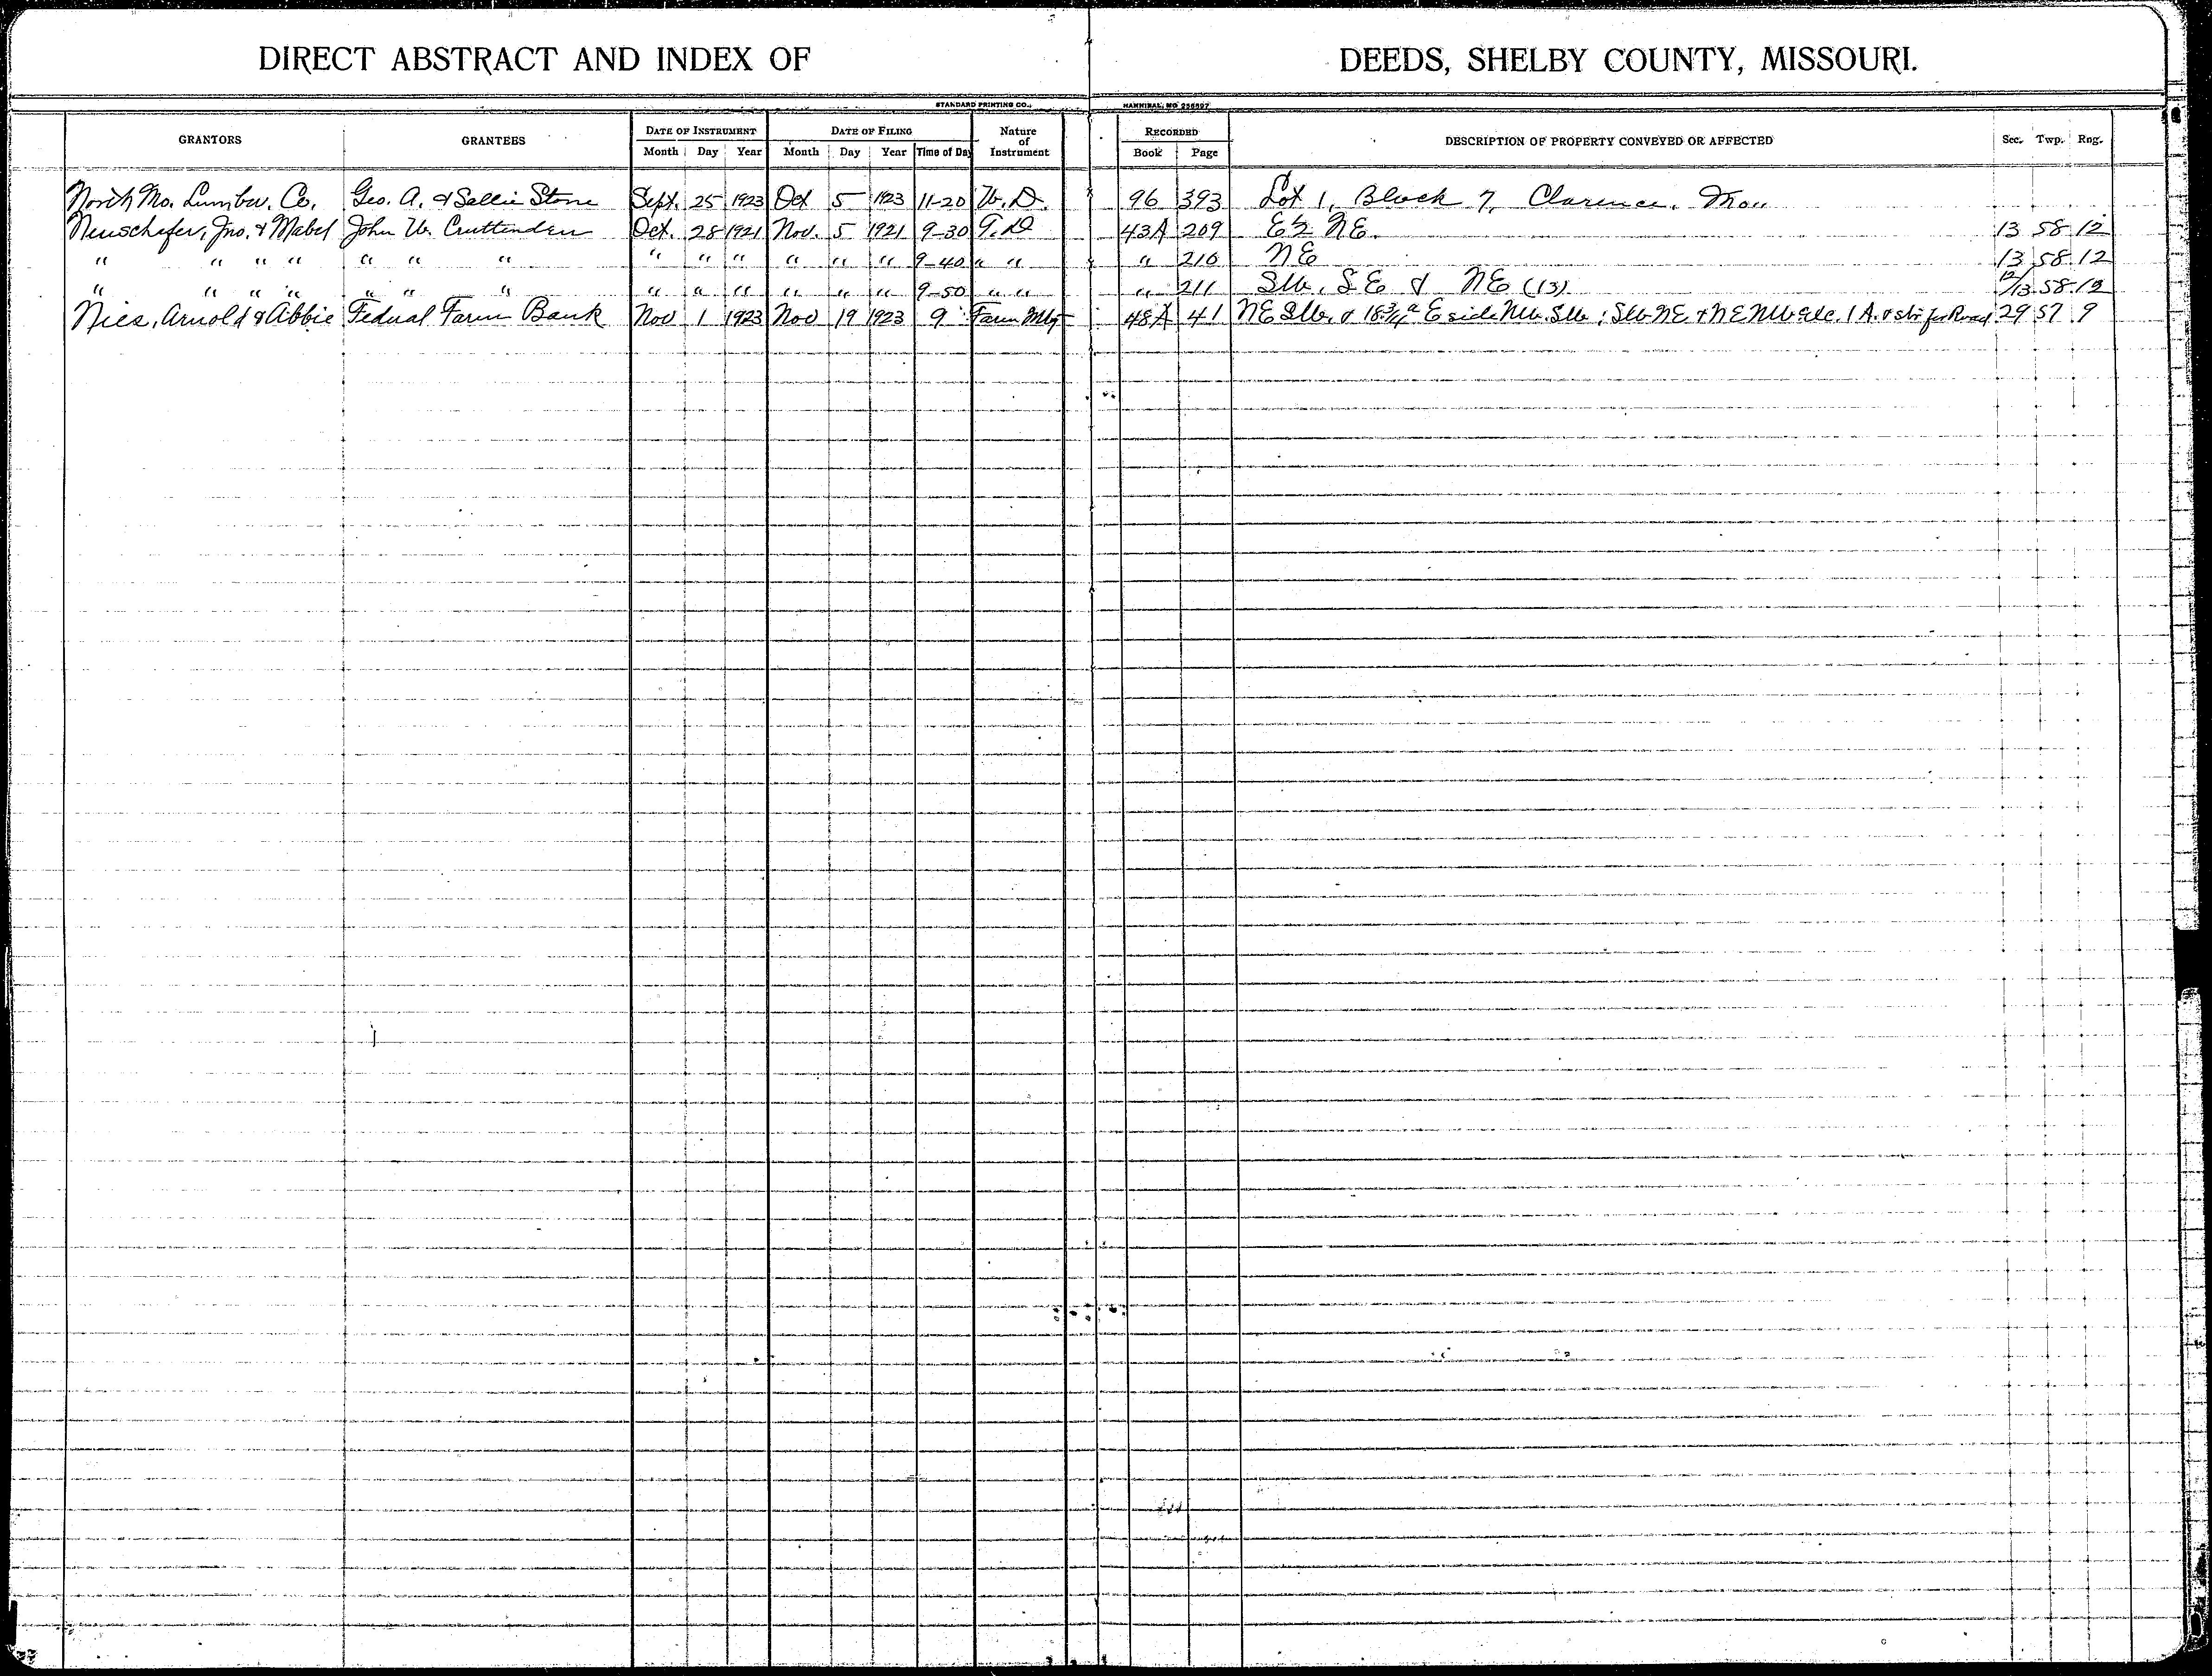 DIRECT ABSTRACT AND INDEX OF DEEDS, SHELBY COUNTY, MISSOURI.
STANDARD PRINTING CO., HANNIBAL, MO 256597
GRANTORS GRANTEES DATE OF INSTRUMENT DATE OF FILING Nature of Instrument RECORDED DESCRIPTION OF PROPERTY CONVEYED OR AFFECTED Sec. Twp. Rng.
Month Day Year Month Day Year Time of Day Book Page
North Mo. Lumber. Co. Geo. A. & Sallie Stone Sept. 25 1923 Oct 5 1923 11-20 W.D. 96 393 Lot 1, Block 7, Clarence, Mo.
Neuschafer, Jno. & Mabel John W. Cruttenden Oct. 28 1921 Nov. 5 1921 9-30 T.D 43A 209 E½ NE. 13 58 12
" " " " " " " " " " " " " 9-40 " " " 210 NE 13 58 12
" " " " " " " " " " " " " 9-50 " " " 211 SW, SE & NE (13) 12/13 58 12
Nies, Arnold & Abbie Federal Farm Bank Nov 1 1923 Nov 19 1923 9 Farm Mtg 48A 41 NE SW. & 18¾ a E side NW. SW; SW NE. & NE NW 1 A. & str for Road 29 57 9